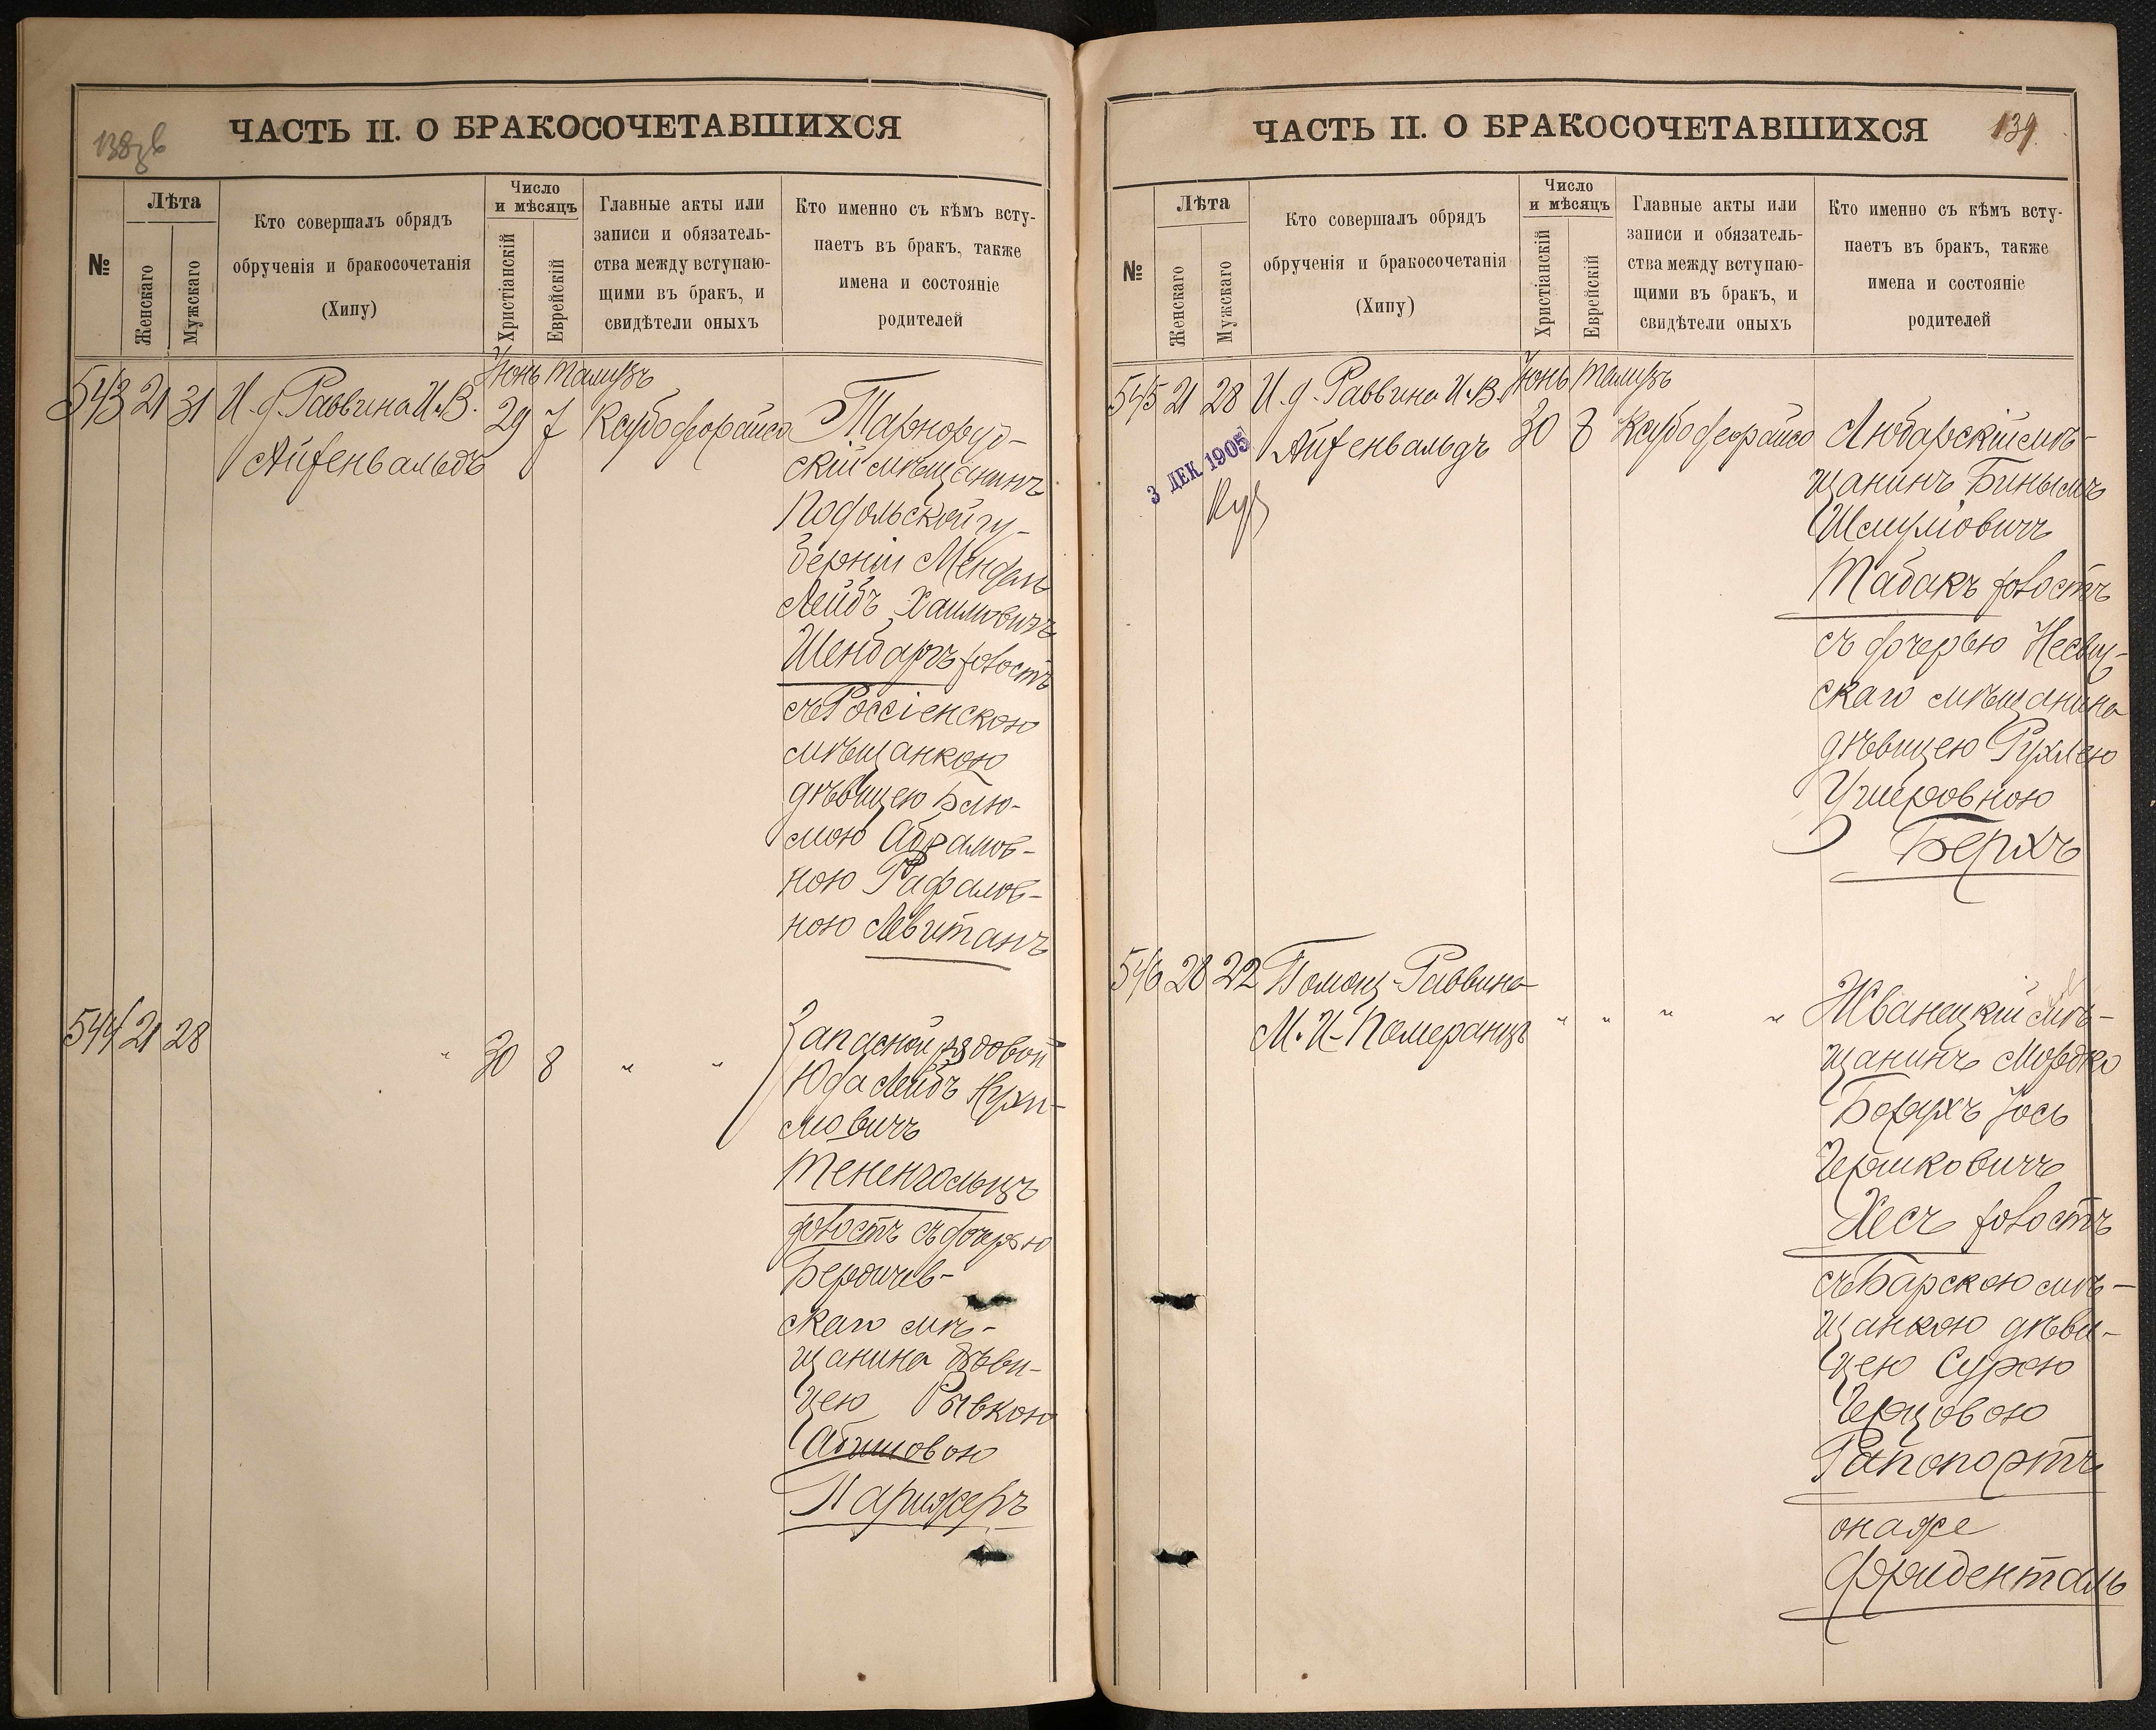 138об
ЧАСТЬ II. О БРАКОСОЧЕТАВШИХСЯ
№
Лѣта
Женскаго
Мужскаго
Кто совершалъ обрядъ
обрученія и бракосочетанія
(Хипу)
Число
и мѣсяцъ
Христіанскій
Еврейскій
Главные акты или
записи и обязатель-
ства между вступаю-
щими въ бракъ, и
свидѣтели оныхъ
Кто именно съ кѣмъ всту-
паетъ въ бракъ, также
имена и состояніе
родителей
Іюнь Тамузъ
543 21 31 И. д. Раввина И. В. 29 7
Айзенвальдъ
Тарноруд-
скій мѣщанинъ
Подольской гу-
берніи Мендель
Лейбъ Хаимовичъ
Шенбаргъ холостъ
съ Россіенскою
мѣщанкою
дѣвицею Блю-
мою Абрамов-
ною Рафалов-
ною Левитанъ
544 21 28 " 30 8 " "
Запасной рядовой
Юда Лейбъ Нухи-
мовичъ
Тененгольцъ
холостъ съ дочерью
Бердичев-
скаго мѣ-
щанина дѣви-
цею Рывкою
Абишовою
Парижеръ
139
ЧАСТЬ II. О БРАКОСОЧЕТАВШИХСЯ
№
Лѣта
Женскаго
Мужскаго
Кто совершалъ обрядъ
обрученія и бракосочетанія
(Хипу)
Число
и мѣсяцъ
Христіанскій
Еврейскій
Главные акты или
записи и обязатель-
ства между вступаю-
щими въ бракъ, и
свидѣтели оныхъ
Кто именно съ кѣмъ всту-
паетъ въ бракъ, также
имена и состояніе
родителей
Іюнь Тамузъ
545 21 28 И. д. Раввина И. В. 30 8
Айзенвальдъ
3 ДЕК 1905
Любарскій мѣ-
щанинъ Биньмъ
Шмуліовичъ
Табакъ холостъ
съ дочерью Несвиж-
скаго мѣщанина
дѣвицею Рухлею
Ушеровною
Берхъ
546 28 22 Помощ. Раввина
М. И. Померанцъ " " " "
Жванецкій мѣ-
щанинъ Мордко
Борухъ Іось
Гершковичъ
Хесъ холостъ
съ Барскою мѣ-
щанкою дѣви-
цею Сурою
Герцовою
Рапопортъ
онаже
Фриденталь